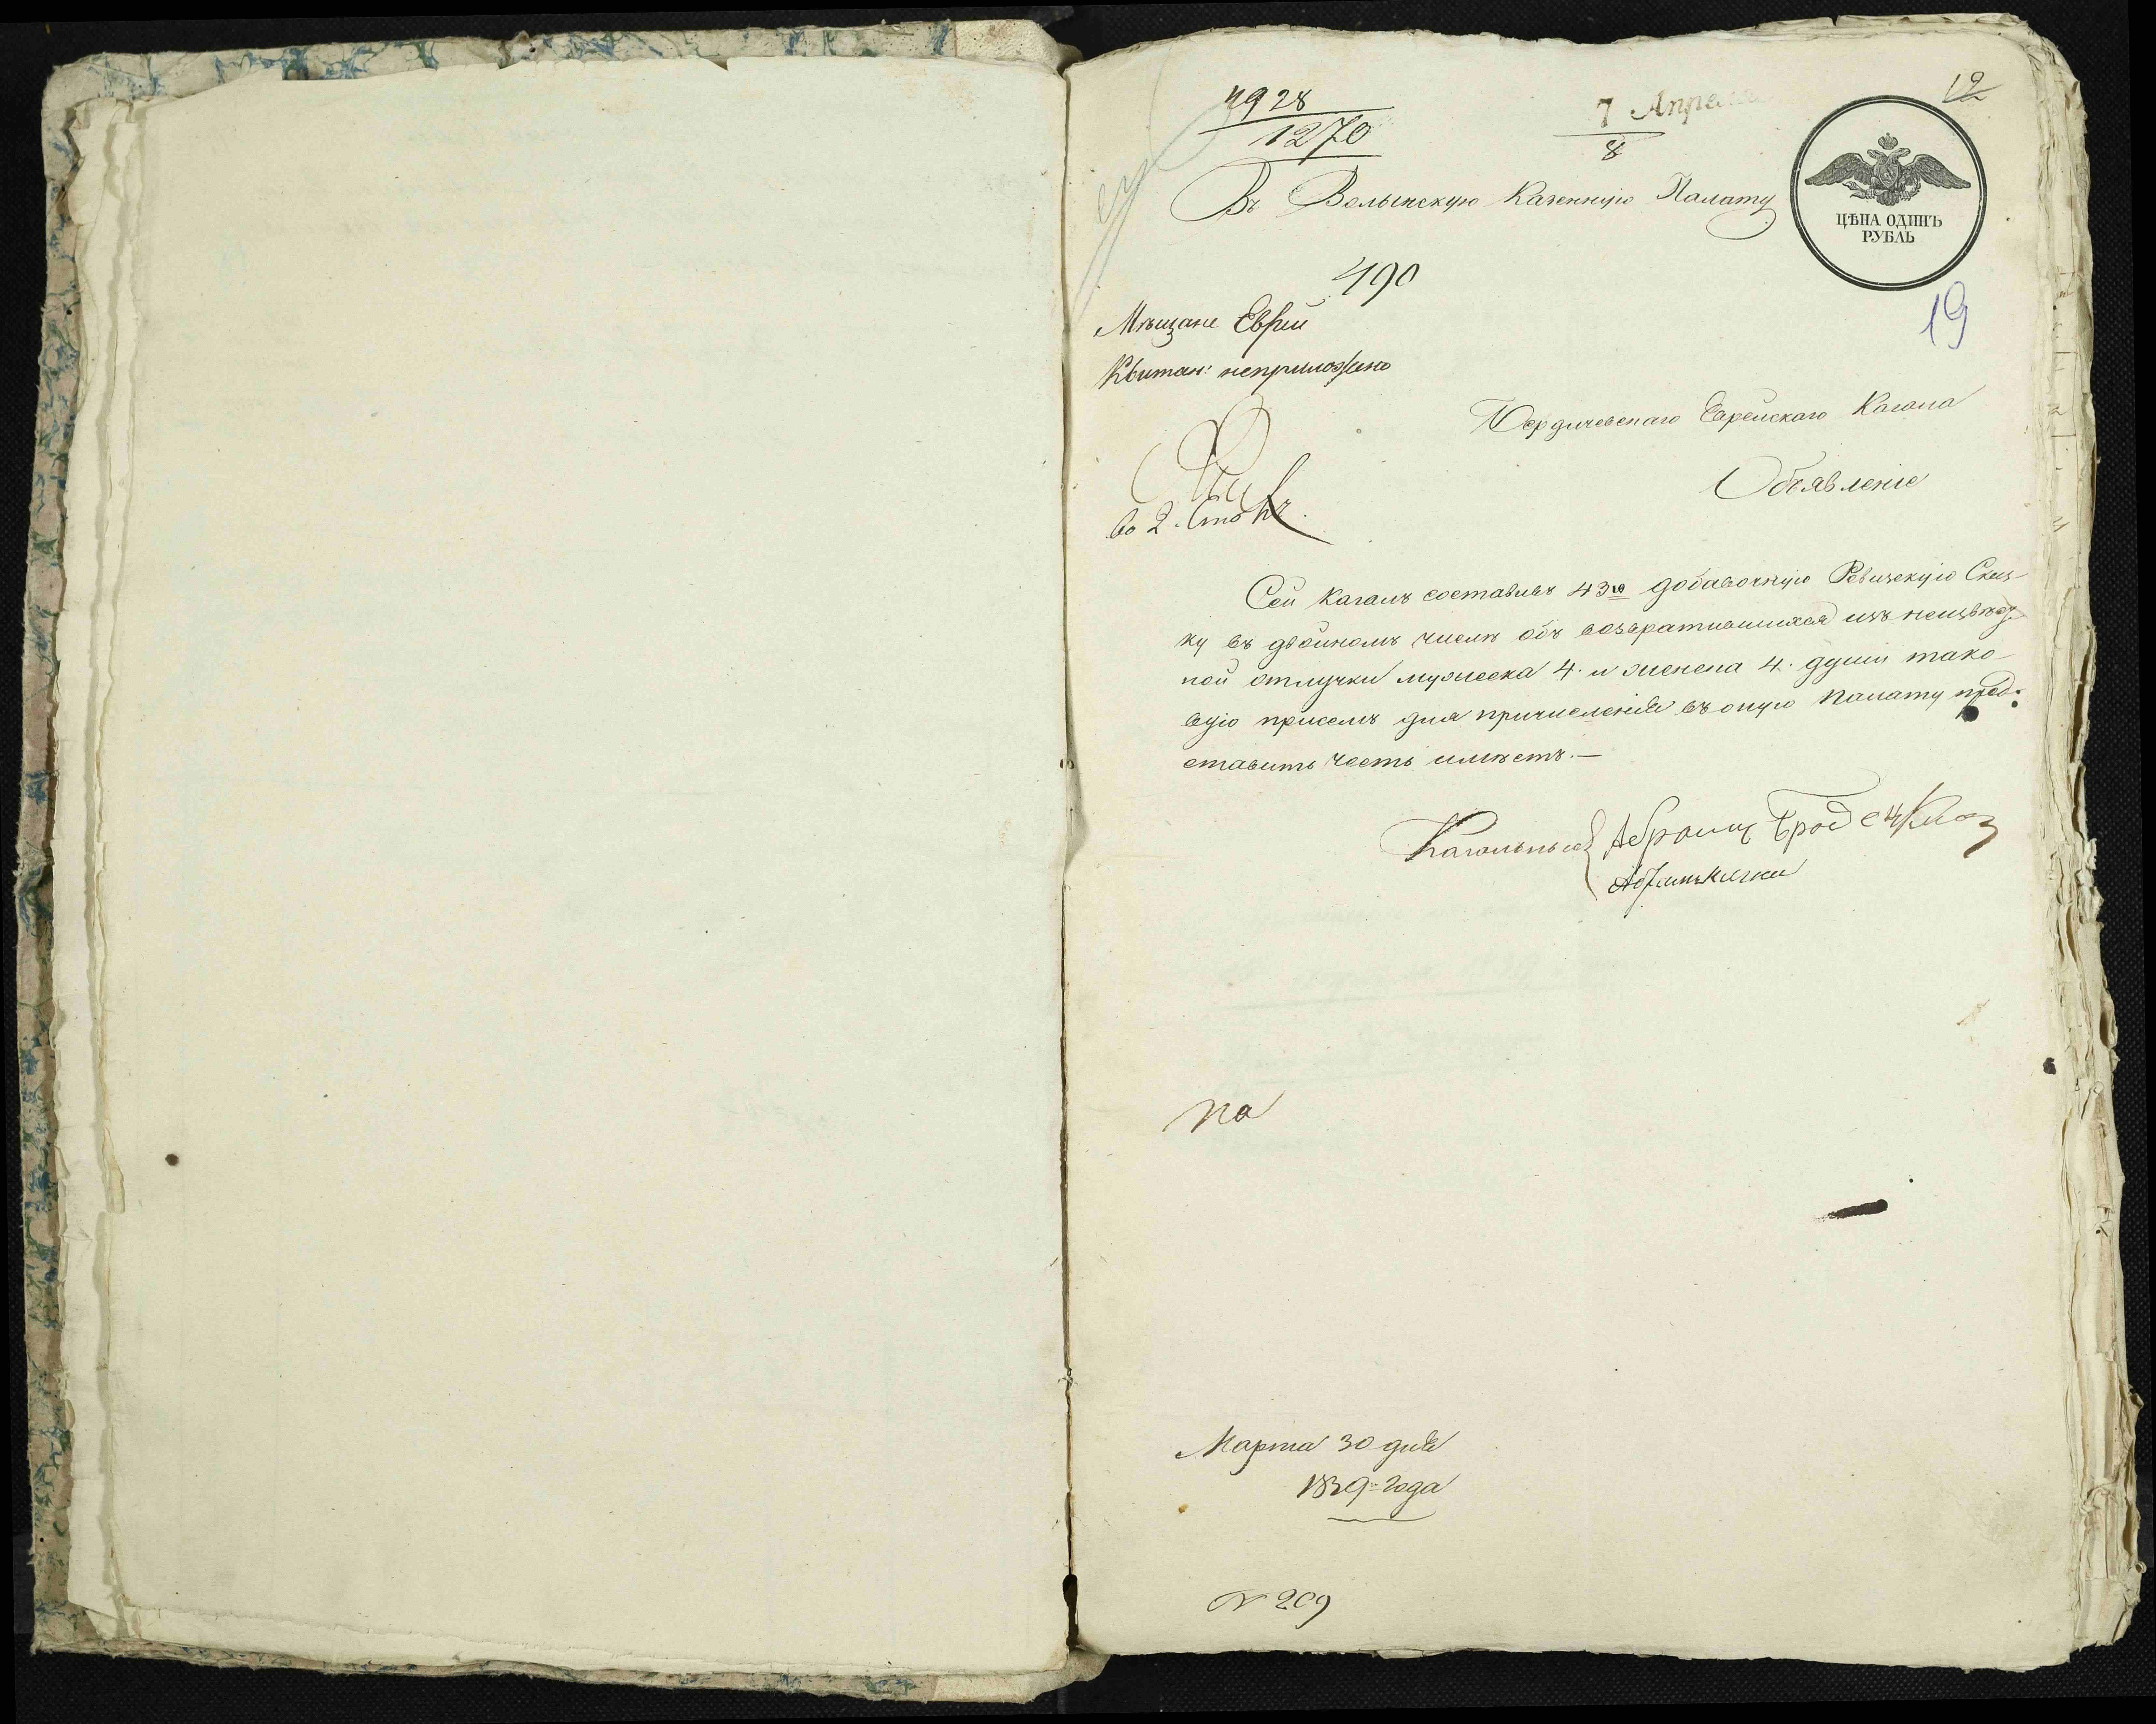 4928
1270
7 Апреля
8
19
Въ Волынскую Казенную Палату
ЦѢНА ОДИНЪ
РУБЛЬ
490
19
Мѣщане Евреи
Квитан: неприложено
Бердичевскаго Еврейскаго Кагала
Объявленіе
во 2. Стол
Сей Кагалъ составивъ 43ю добавочную Ревизскую Сказ-
ку въ двойномъ числѣ объ возвратившихся изъ неизвѣст-
ной отлучки мужеска 4. и женска 4. души тако-
вую присемъ для причисленія въ оную палату пред-
ставить честь имѣетъ.—
Кагальные Абрамъ Бродецкій
Марта 30 дня
1839 года
№ 209